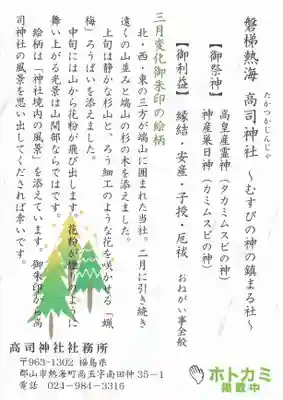 磐梯熱海 高司神社 ～むすびの神の鎮まる社～
たかつかじんじゃ
【御祭神】
高皇産霊神（タカミムスビの神）
神産巣日神（カミムスビの神）
【御利益】 縁結・安産・子授・厄祓 おねがい事全般
三月変化御朱印の絵柄
北・西・東の三方が端山に囲まれた当社。二月に引き続き
遠くの山並みと端山の杉の木を添えました。
上旬は静かな杉山と、ろう細工のような花を咲かせる「蝋
梅」ろうばいを添えました。
中旬には山から花粉が飛び出します。花粉が煙のように
舞い上がる光景は山間部ならではです。
絵柄は「神社境内の風景」を添えています。御朱印から高
司神社の風景を思い出してくだされば幸いです。
高司神社社務所
〒963-1302 福島県
郡山市熱海町高玉字南田仲35-1
電話 024-984-3316
ホトカミ
掲載中